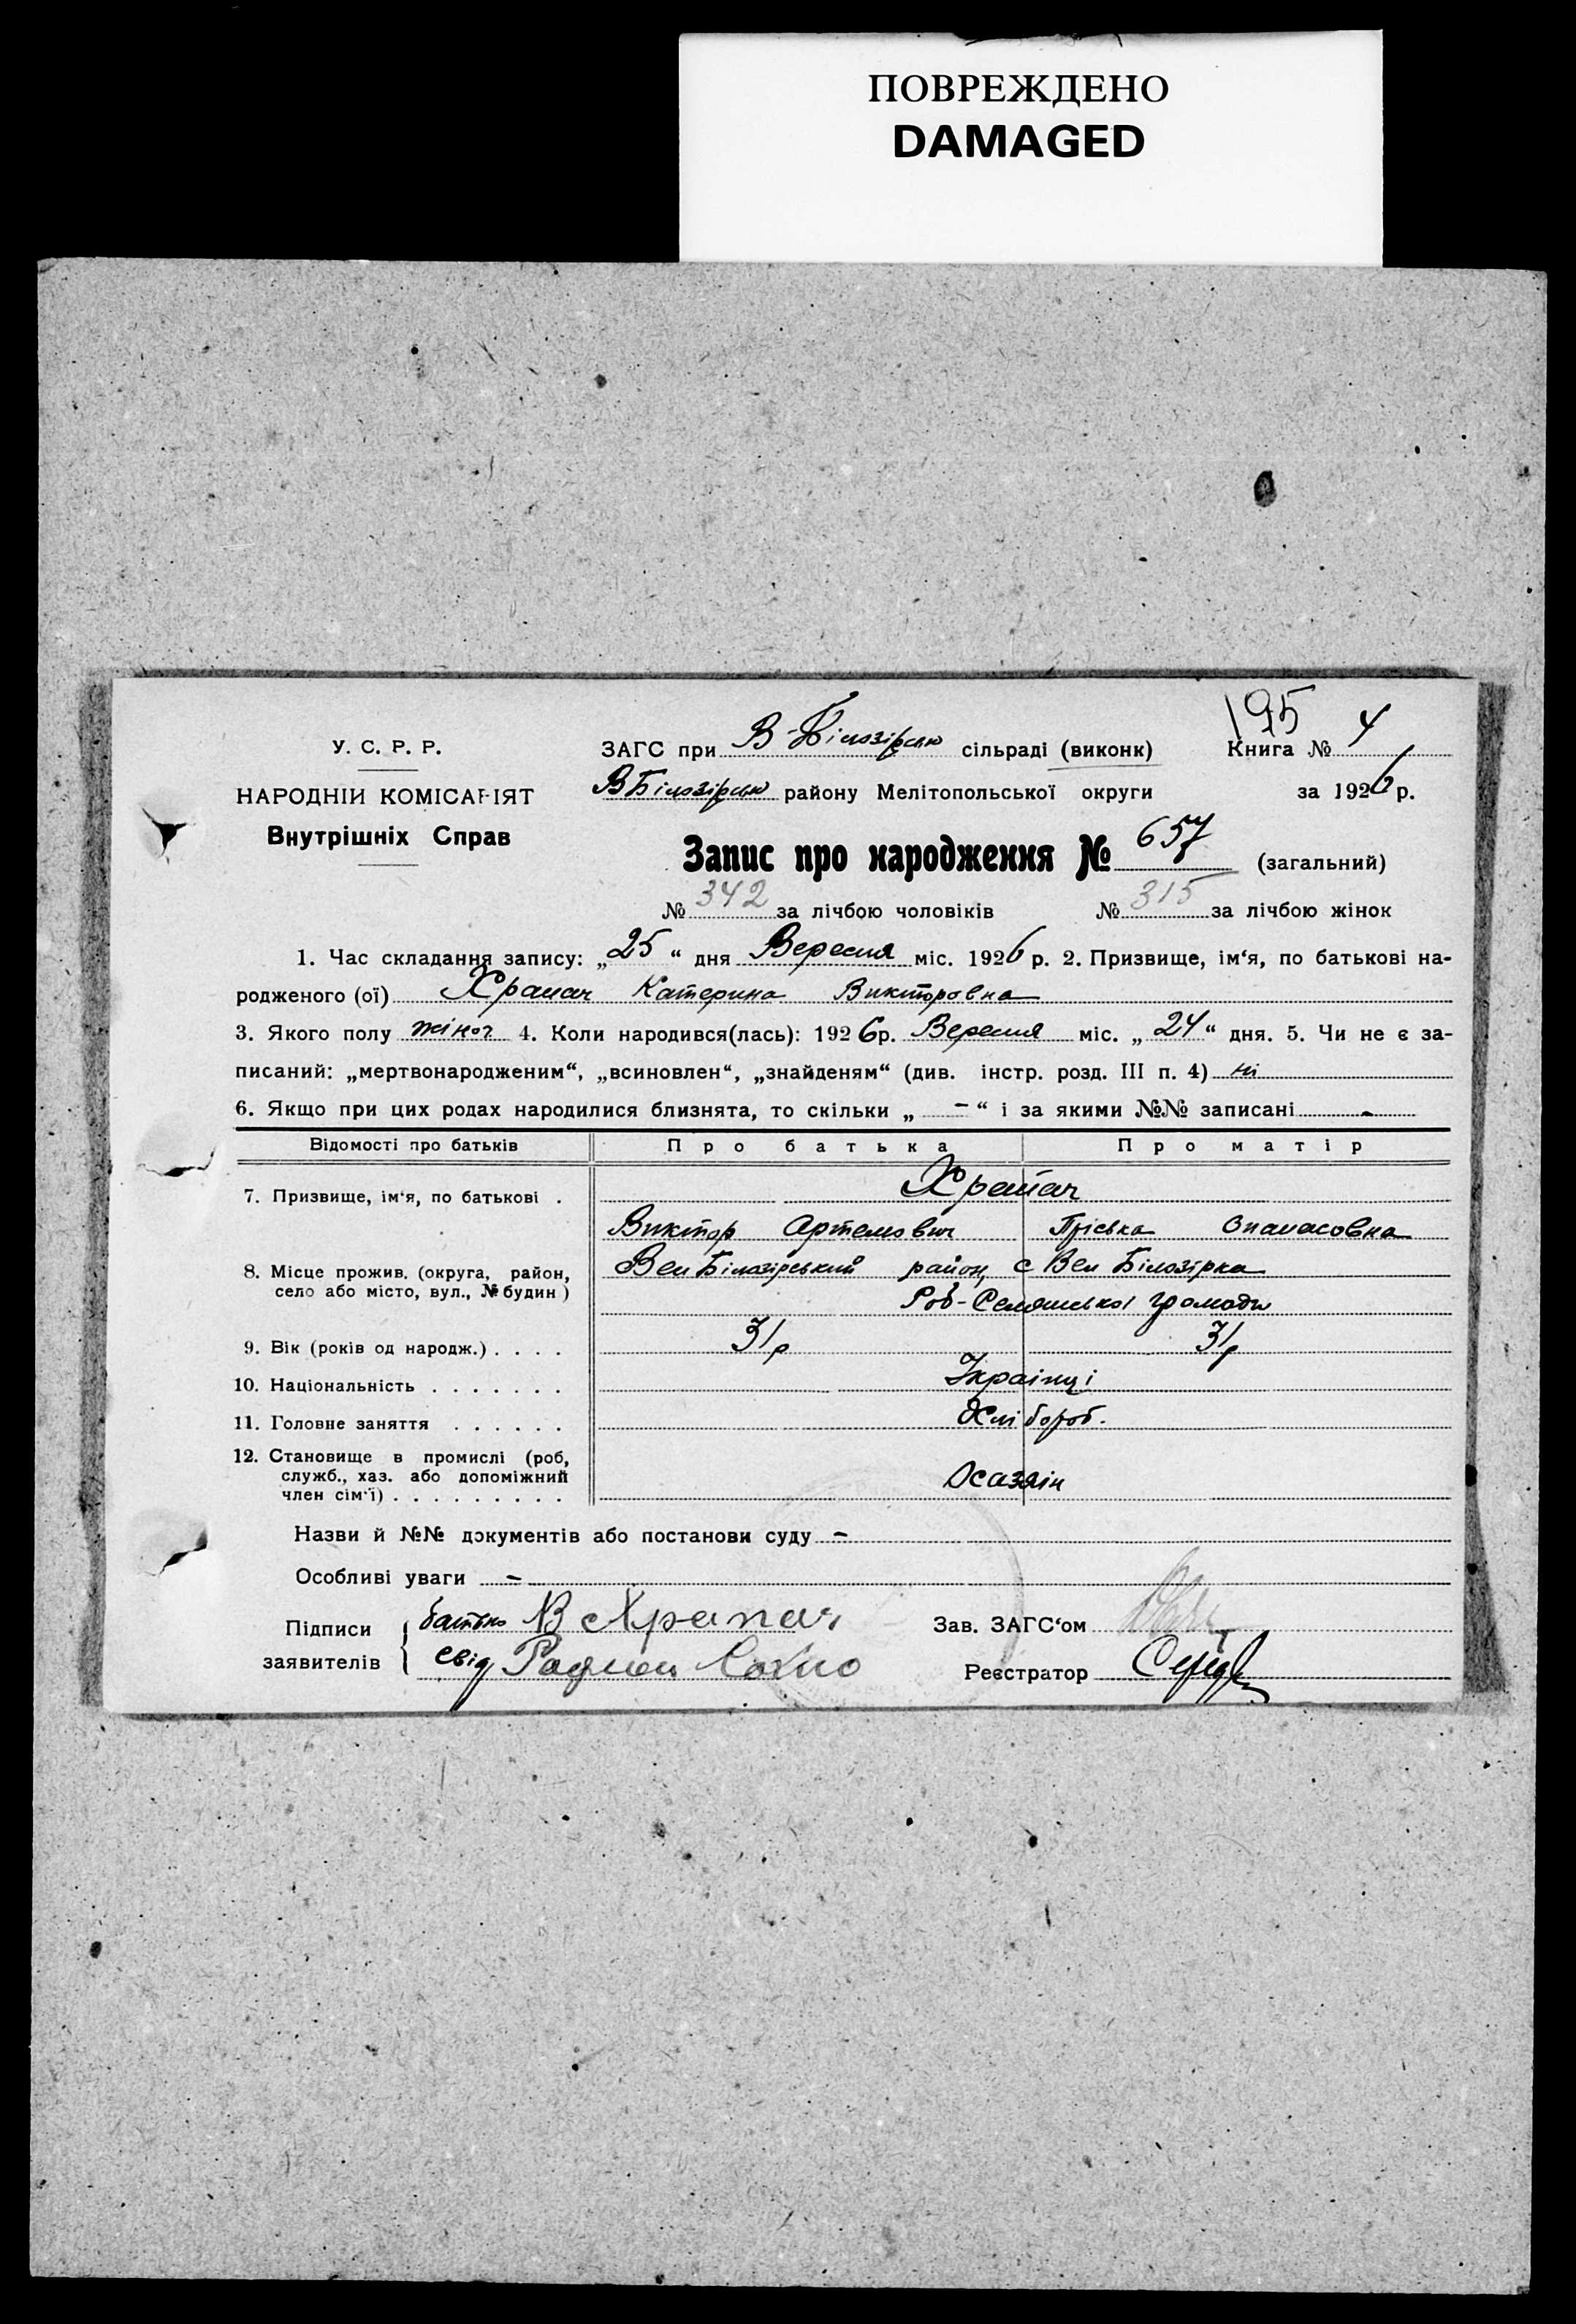 ПОВРЕЖДЕНО
DAMAGED
195
У. С. Р. Р.
ЗАГС при В-Білозірськ сільраді (виконк)
Книга № 4
НАРОДНІЙ КОМІСАРІЯТ
ВБілозірськ району Мелітопольської округи
за 1926 р.
Внутрішніх Справ
Запис про народження № 657 (загальний)
№ 342 за лічбою чоловіків № 315 за лічбою жінок
1. Час складання запису: „25“ дня Вересня міс. 1926 р. 2. Призвище, ім‘я, по батькові на-
родженого (ої) Храпач Катерина Викторовна
3. Якого полу жіноч 4. Коли народився(лась): 1926р. Вересня міс. „24“ дня. 5. Чи не є за-
писаний: „мертвонародженим“, „всиновлен“, „знайденям“ (див. інстр. розд. III п. 4) ні
6. Якщо при цих родах народилися близнята, то скільки „ – “ і за якими №№ записані -
Відомості про батьків Про батька Про матір
7. Призвище, ім‘я, по батькові . Храпач
Виктор Артемович Пріська Опанасовна
8. Місце прожив. (округа, район, Вел Білозірський район, с Вел Білозірка
село або місто, вул., № будин) Роб-Селянської громади
9. Вік (років од народж.) . . . . 31р 31р
10. Національність . . . . . . . Українці
11. Головне заняття . . . . . . Хлібороб.
12. Становище в промислі (роб,
служб., хаз. або допоміжний
член сім‘ї) . . . . . . . . . Хазяін
Назви й №№ документів або постанови суду –
Особливі уваги –
Підписи батько В Храпач Зав. ЗАГС‘ом
заявителів свід Реєстратор